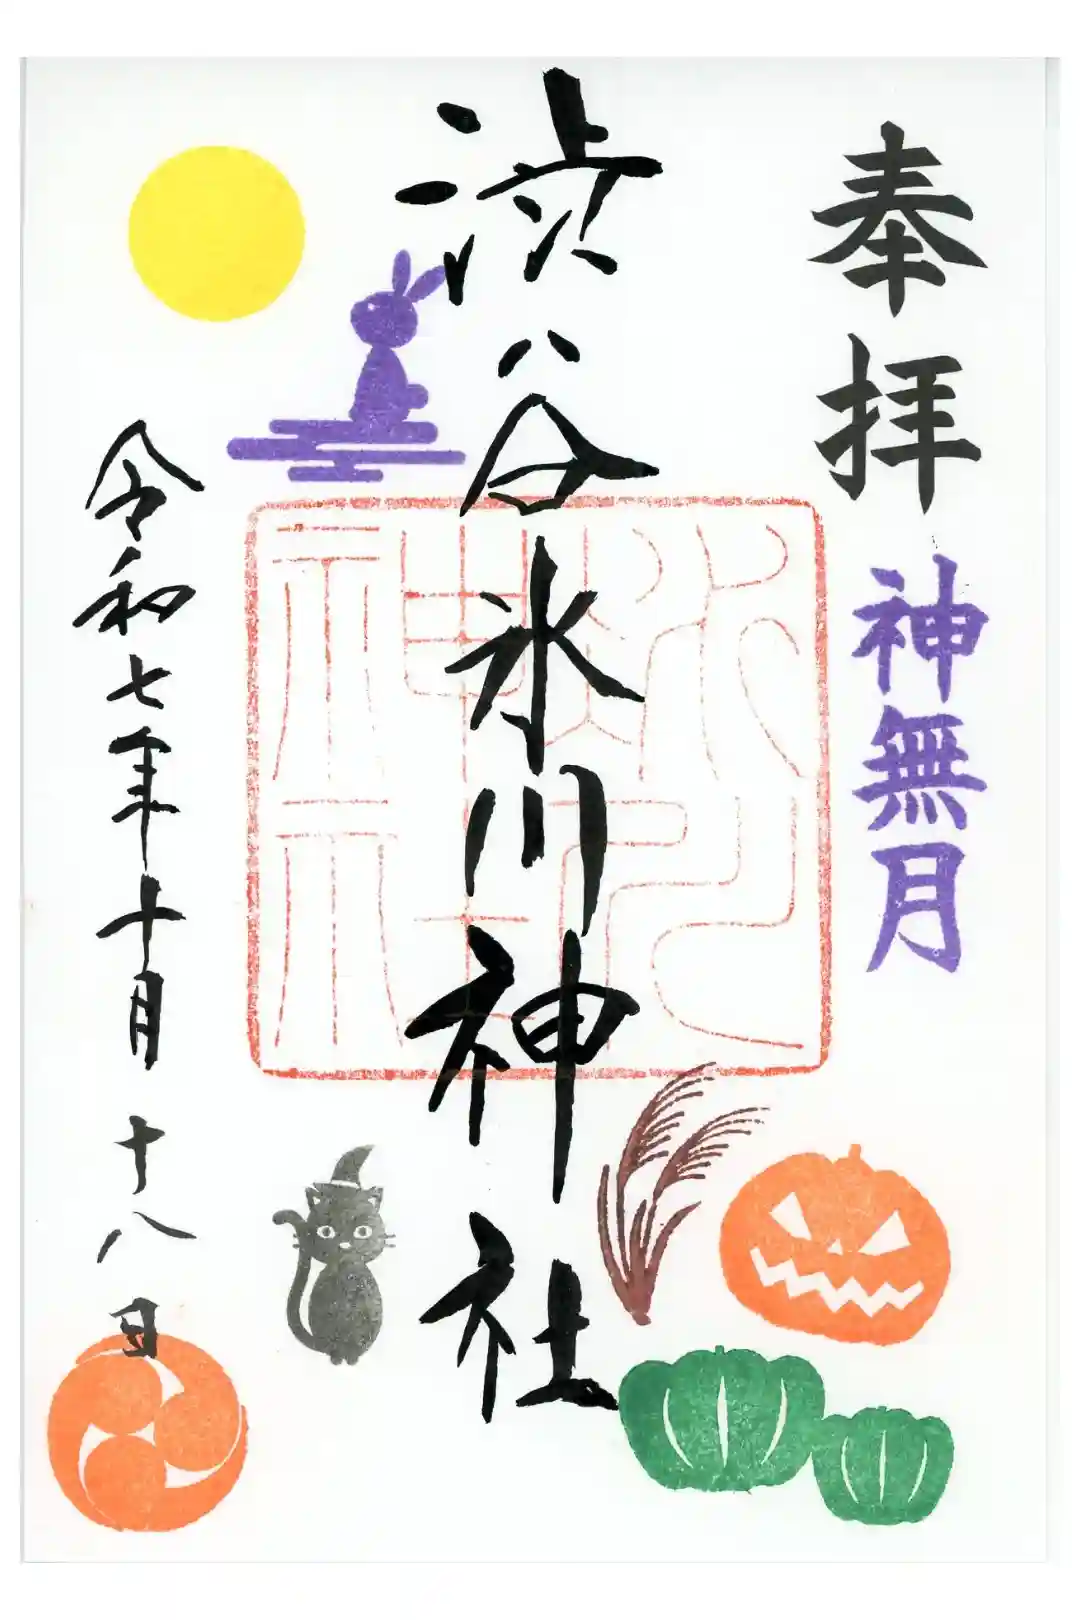 奉拝
神無月
渋谷氷川神社
令和七年十月十八日